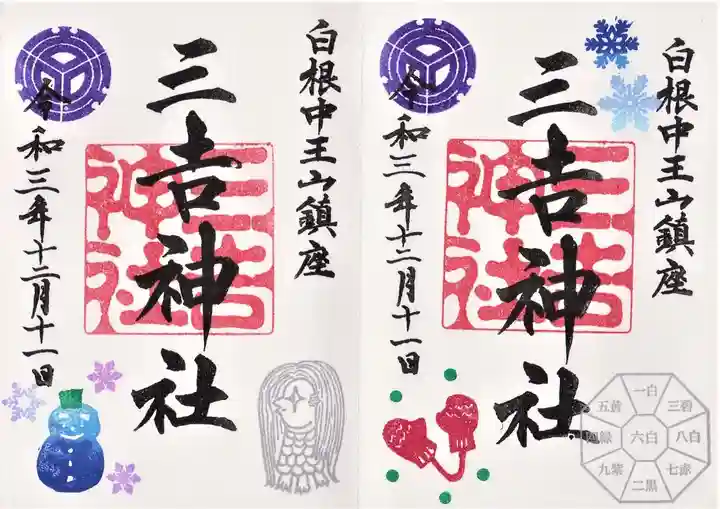 白根中王山鎮座
三吉神社
三吉神社
令和三年十二月十一日
白根中王山鎮座
三吉神社
三吉神社
令和三年十二月十一日
一白
五黄 三碧
四緑 六白 八白
九紫 七赤
二黒